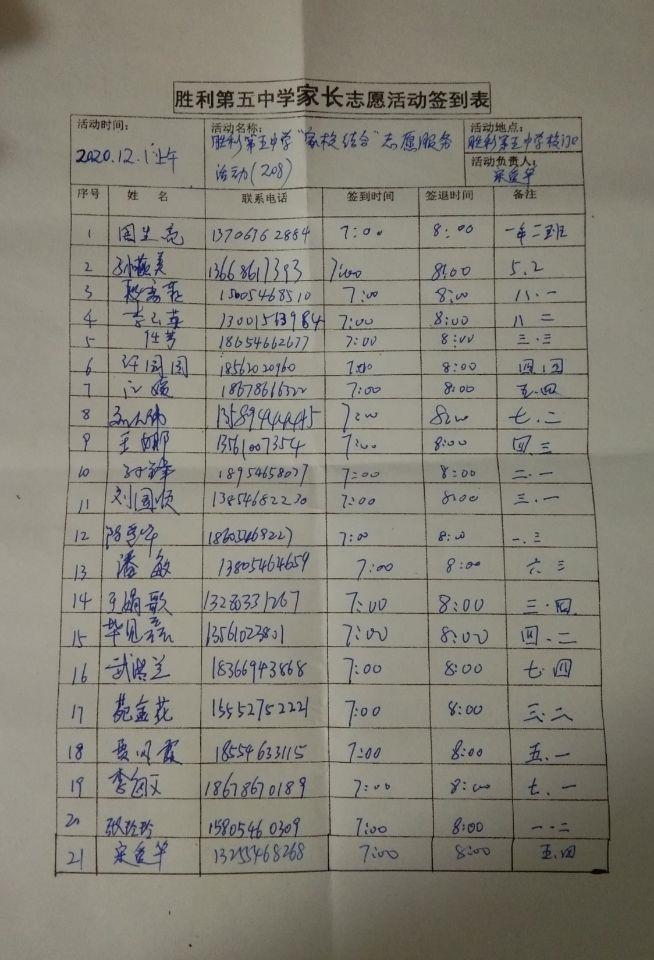 胜利第五中学家长志愿活动签到表
活动时间： 活动名称： 活动地点：
2020.12.1上午 胜利第五中学"家校结合"志愿服务 胜利第五中学校门口
活动(208) 活动负责人：
序号 姓 名 联系电话 签到时间 签退时间 备注
1 周生亮 13706362884 7:00 8:00 一年二班
2 13668617393 7:00 8:00 5.2
3 15005468510 7:00 8:00 八.一
4 13001563984 7:00 8:00 八 二
5 任梦 18654662677 7:00 8:00 三.三
6 许园园 18562020960 7:00 8:00 四.四
7 18678616322 7:00 8:00 五.四
8 13589444445 7:00 8:00 七.二
9 王娜 13561007354 7:00 8:00 四.三
10 18954658077 7:00 8:00 二.一
11 刘国顺 13854682230 7:00 8:00 三.一
12 18605468227 7:00 8:00 一.三
13 潘敏 13805464659 7:00 8:00 六.三
14 于娟歌 13280331267 7:00 8:00 三.四
15 毕见磊 13561023801 7:00 8:00 四.二
16 武洪兰 18366943868 7:00 8:00 七.四
17 苑金花 15552752221 7:00 8:00 三.二
18 贾凤霞 18554633115 7:00 8:00 五.一
19 18678670189 7:00 8:00 七.一
20 张玲玲 15805460309 7:00 8:00 一.二
21 13255468268 7:00 8:00 五.四